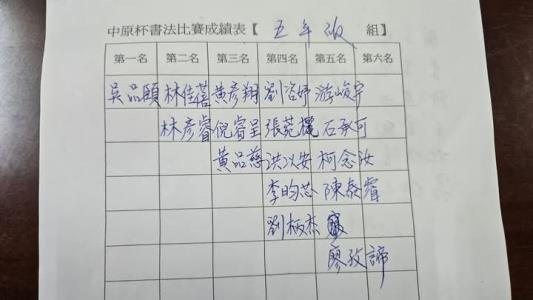 中原杯書法比賽成績表【五年級組】
第一名 第二名 第三名 第四名 第五名 第六名
吳品頤 林佳蓓 黃彥翔 劉洺妤 游峻宇
林彥睿 倪睿呈 張菀 石承可
黃品慈 洪以安 柯念汝
李昀芯 陳泰睿
劉柏杰
廖孜諦